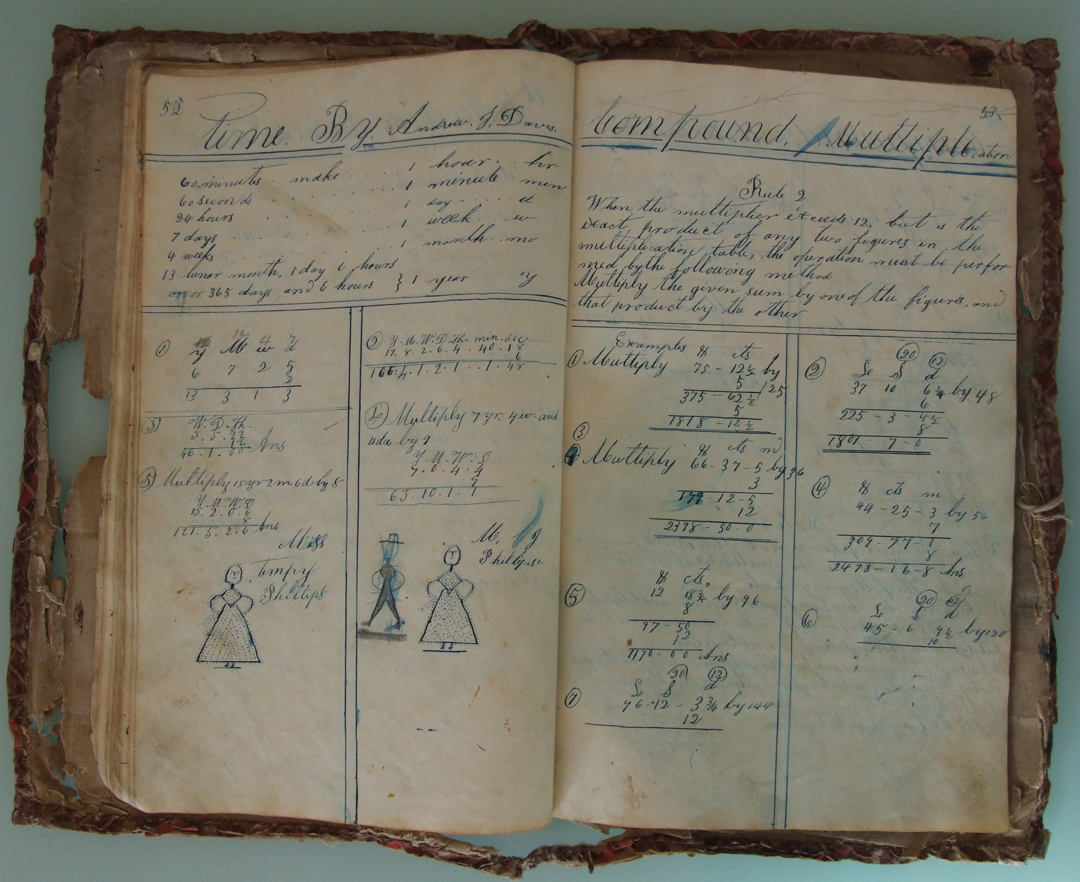 52
time. By Andrew. J. Davis.
60 minutes make . . . . 1 hour . . hr
60 seconds . . . . 1 minute min
24 hours . . . . 1 day . . . d
7 days . . . . 1 week . . w
4 weeks . . . . 1 month . . mo
13 lunar month, 1 day 6 hours
or 365 days and 6 hours } 1 year y
12 4 7
y M w d
6 7 2 5
2
13 3 1 3
3
W. D. H.
46. 1. 00 Ans
5 Multiply 15 yr 2 m 6 d by 8
Y. M. W. D
15. 2. 0. 6
8
121. 5. 2. 6 Ans
Miss
Tempy
Phillips
2 Y. M. W. D. H. min. sec
17. 8. 2. 6. 4. 40. 18
6
106. 4. 1. 2. 1 . . 1. 48
4 Multiply 7 yr. 4 w. and
4 da by 9
Y. M. W. D
7. 0. 4. 4
9
65. 10. 1. 1
M.
Phillips
53
Compound. Multiplication
Rule 2
When the multiplier exceeds 12, but is the
exact product of any two figures in the
multiplication table, the operation must be perfor
med by the following method
Multiply the given sum by one of the figures, and
that product by the other
Examples $ cts
1 Multiply 75 - 12½ by
5 / 25
375 - 62½
5
1878 - 12½
3
Multiply $ cts m
66 - 37 - 5 by 36
3
199 - 12 - 5
12
2398 - 50 - 0
5 $ cts
12 18¾ by 96
8
97 - 50
12
1170 - 00 Ans
20 12
7 £ S d
96 - 12 - 3¾ by 144
12
20 12
2 £ S d
37 10 6¾ by 48
6
225 - 3 - 4½
8
1801 - 7 - 0
4 $ cts m
44 - 25 - 3 by 56
7
309 - 77 - 1
8
2478 - 16 - 8 Ans
20 12
6 £ S d
45 - 6 - 9½ by 120
10